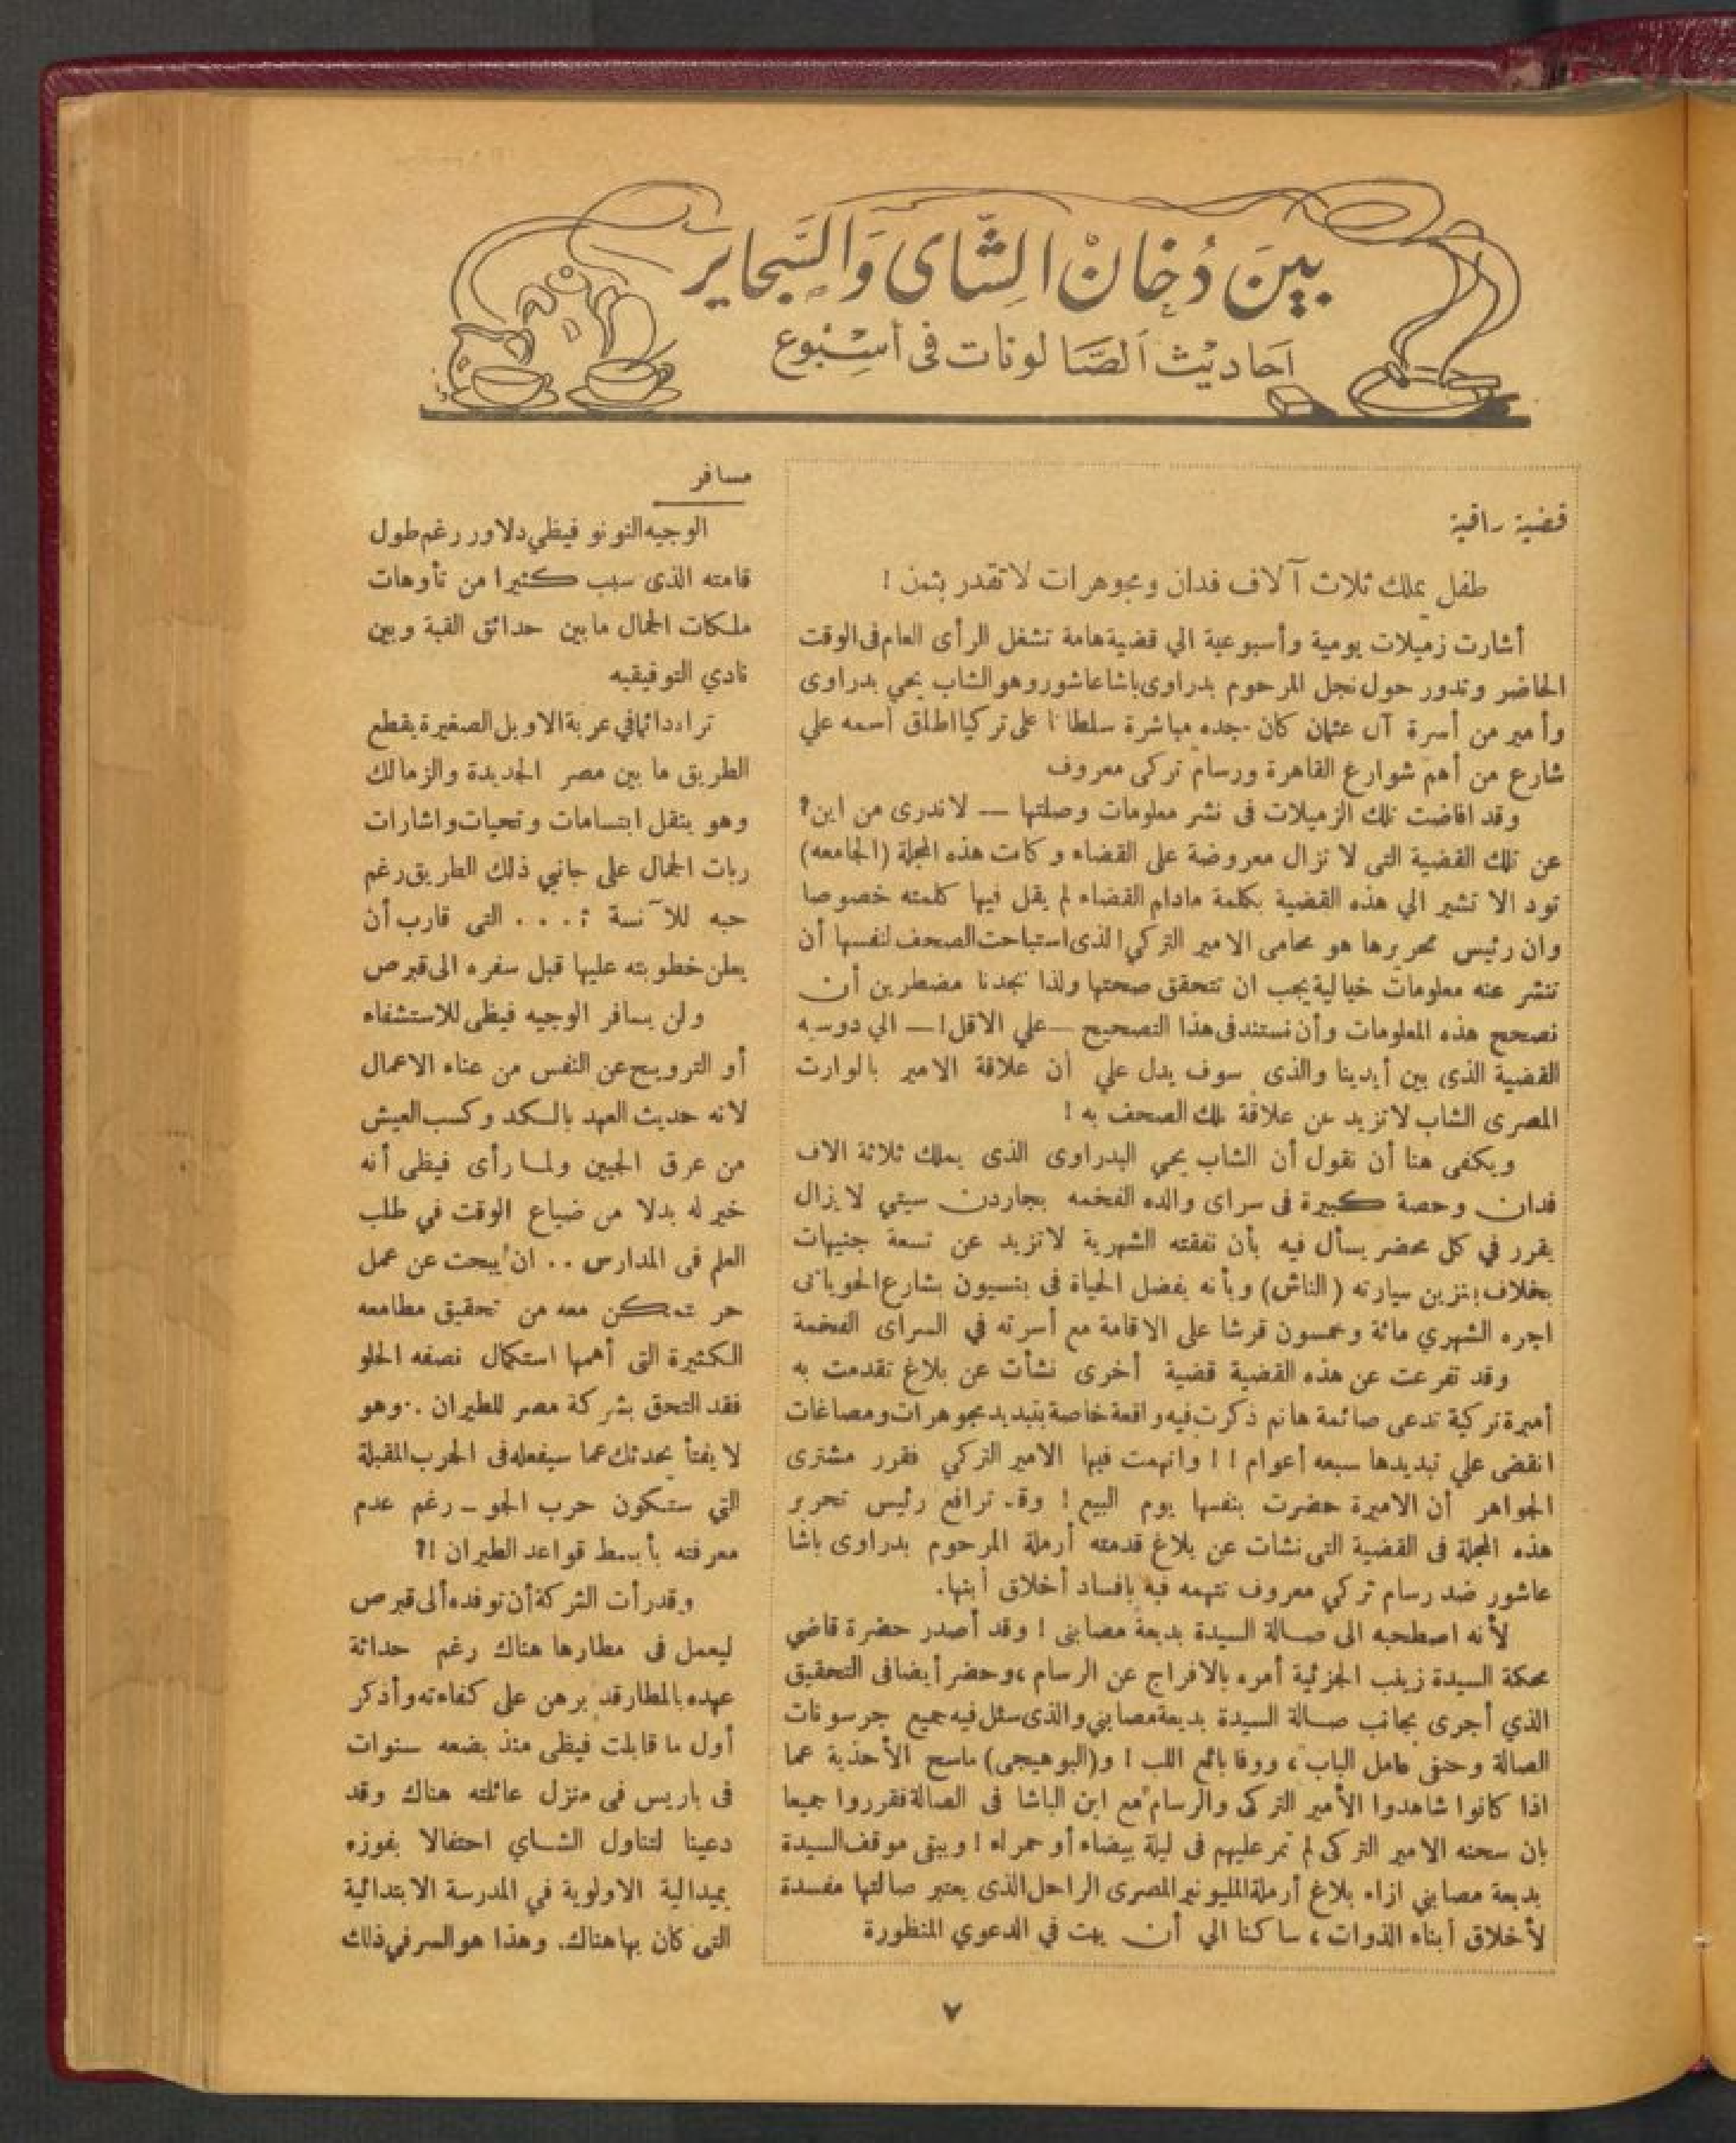 بين دخان الشاى والسجاير
أحاديث الصالونات فى أسبوع
قضية راقية
طفل يملك ثلاث آلاف فدان ومجوهرات لاتقدر بثمن !
أشارت زميلات يومية وأسبوعية الي قضية هامة تشغل الرأى العام فى الوقت
الحاضر وتدور حول نجل المرحوم بدراوى باشا عاشور وهو الشاب يحي بدراوى
وأمير من أسرة آل عثمان كان جده مباشرة سلطانا على تركيا اطلق اسمه علي
شارع من أهم شوارع القاهرة ورسام تركى معروف
وقد افاضت تلك الزميلات فى نشر معلومات وصلتها — لاندرى من اين؟
عن تلك القضية التى لا تزال معروضة على القضاء وكانت هذه المجلة (الجامعه)
تود الا تشير الي هذه القضية بكلمة مادام القضاء لم يقل فيها كلمته خصوصا
وان رئيس تحريرها هو محامى الامير التركي الذى استباحت الصحف لنفسها أن
تنشر عنه معلومات خيالية يجب ان تتحقق صحتها ولذا نجدنا مضطرين أن
نصحح هذه المعلومات وأن نستند فى هذا التصحيح — علي الاقل ! — الي دوسيه
القضية الذى بين أيدينا والذى سوف يدل علي أن علاقة الامير بالوارث
المصرى الشاب لاتزيد عن علاقة تلك الصحف به !
ويكفى هنا أن نقول أن الشاب يحي البدراوى الذى يملك ثلاثة الاف
فدان وحصة كبيرة فى سراى والده الفخمه بجاردن سيتي لايزال
يقرر في كل محضر يسأل فيه بأن نفقته الشهرية لاتزيد عن تسعة جنيهات
بخلاف بنزين سيارته ( الناش) وبأنه يفضل الحياة فى بنسيون بشارع الحوياتى
اجره الشهري مائة وخمسون قرشا على الاقامة مع أسرته في السراى الفخمة
وقد تفرعت عن هذه القضية قضية أخرى نشأت عن بلاغ تقدمت به
أميرة تركية تدعى صائمة هانم ذكرت فيه واقعة خاصة بتبديد مجوهرات ومصاغات
انقضى علي تبديدها سبعه أعوام ! ! واتهمت فيها الامير التركي فقرر مشترى
الجواهر أن الاميرة حضرت بنفسها يوم البيع ! وقد ترافع رئيس تحرير
هذه المجلة فى القضية التى نشات عن بلاغ قدمته أرملة المرحوم بدراوى باشا
عاشور ضد رسام تركي معروف تتهمه فيه بافساد أخلاق أبنها.
لأنه اصطحبه الى صالة السيدة بديعة مصابنى ! وقد أصدر حضرة قاضي
محكمة السيدة زينب الجزئية أمره بالافراج عن الرسام ، وحضر أيضا فى التحقيق
الذي أجرى بجانب صالة السيدة بديعة مصابني والذى سئل فيه جميع جرسونات
الصالة وحنفى عامل الباب ، ووفا بائع اللب ! و(البوهيجى) ماسح الأحذية عما
اذا كانوا شاهدوا الأمير التركى والرسام مع ابن الباشا فى الصالة فقرروا جميعا
بان سحنه الامير التركى لم تمر عليهم فى ليلة بيضاء أو حمراء ! ويبقى موقف السيدة
بديعة مصابني ازاء بلاغ أرملة المليونير المصرى الراحل الذى يعتبر صالتها مفسدة
لأخلاق أبناء الذوات ، ساكنا الي أن يبت في الدعوي المنظورة
مسافر
الوجيه النونو فيظي دلاور رغم طول
قامته الذى سبب كثيرا من تأوهات
ملكات الجمال مابين حدائق القبة وبين
نادي التوفيقيه
تراه دائما في عربة الاوبل الصغيرة يقطع
الطريق ما بين مصر الجديدة والزمالك
وهو يتقل ابتسامات وتحيات واشارات
ربات الجمال على جانبي ذلك الطريق رغم
حبه للآنسة . . . . التى قارب أن
يعلن خطوبته عليها قبل سفره الى قبرص
ولن يسافر الوجيه فيظى للاستشفاء
أو الترويح عن النفس من عناء الاعمال
لانه حديث العهد بالكد وكسب العيش
من عرق الجبين ولما رأى فيظى أنه
خير له بدلا من ضياع الوقت في طلب
العلم فى المدارس . . ان يبحت عن عمل
حر تمكن معه من تحقيق مطامعه
الكثيرة التى أهمها استكمال نصفه الحلو
فقد التحق بشركة مصر للطيران . . وهو
لا يفتأ يحدثك عما سيفعله فى الحرب المقبلة
التي ستكون حرب الجو — رغم عدم
معرفته بأبسط قواعد الطيران !؟
وقد رأت الشركة أن توفده ألى قبرص
ليعمل فى مطارها هناك رغم حداثة
عهده بالمطار قد برهن على كفاءته وأذكر
أول ما قابلت فيظى منذ بضعه سنوات
فى باريس فى منزل عائلته هناك وقد
دعينا لتناول الشاي احتفالا بفوزه
بميدالية الاولوية في المدرسة الابتدائية
التى كان بها هناك. وهذا هو السر في ذلك
٧